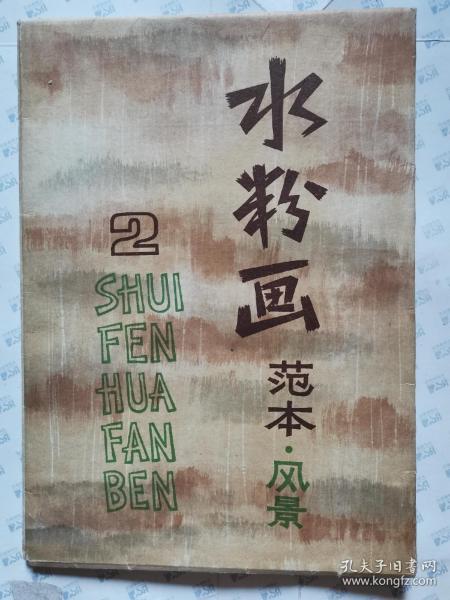 水粉画
范本·风景
2
SHUI
FEN
HUA
FAN
BEN
孔夫子旧书网
www.kongfz.com